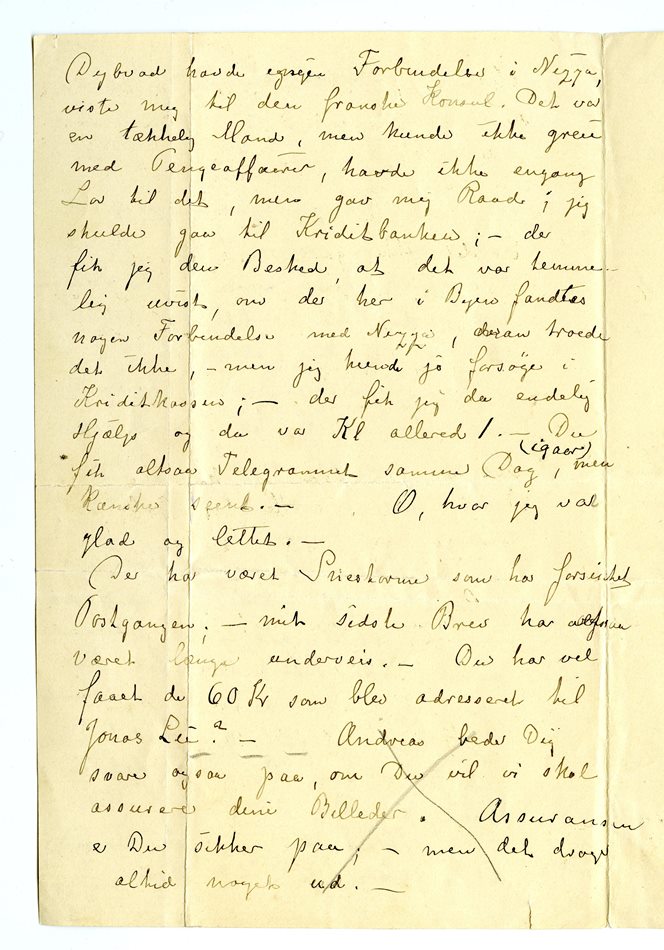 Dybvad havde ingen Forbindelse i Nizza,
viste mig til den franske Konsul. Det var
en tækkelig Mand, men kunde ikke greie
med Pengeaffairer, havde ikke engang
Lov til det, men gav mig Raad; jeg
skulde gaa til Kreditbanken; – der
fik jeg den Besked, at det var temme-
lig uvist, om der her i Byen fandtes
nogen Forbindelse med Nizza, troede
det ikke, – men jeg kunde jo forsøge i
Kreditkassen; – der fik jeg da endelig
Hjælp og da var Kl allered 1. – Du
(igaar)
fik altsaa Telegrammet samme Dag, men
kanske seent. – O, hvor jeg var
glad og lettet. –
Der har været Snestorme som har forsinket
Postgangen; – mit sidste Brev har altsaa
været længe underveis. – Du har vel
faaet de 60 Kr som blev adresseret til
Jonas Lie? – Andreas beder Dig
svare ogsaa paa, om Du vil vi skal
assurere dine Billeder. Assuransen
e Du sikker paa; – men det drager
altid noget ud. –